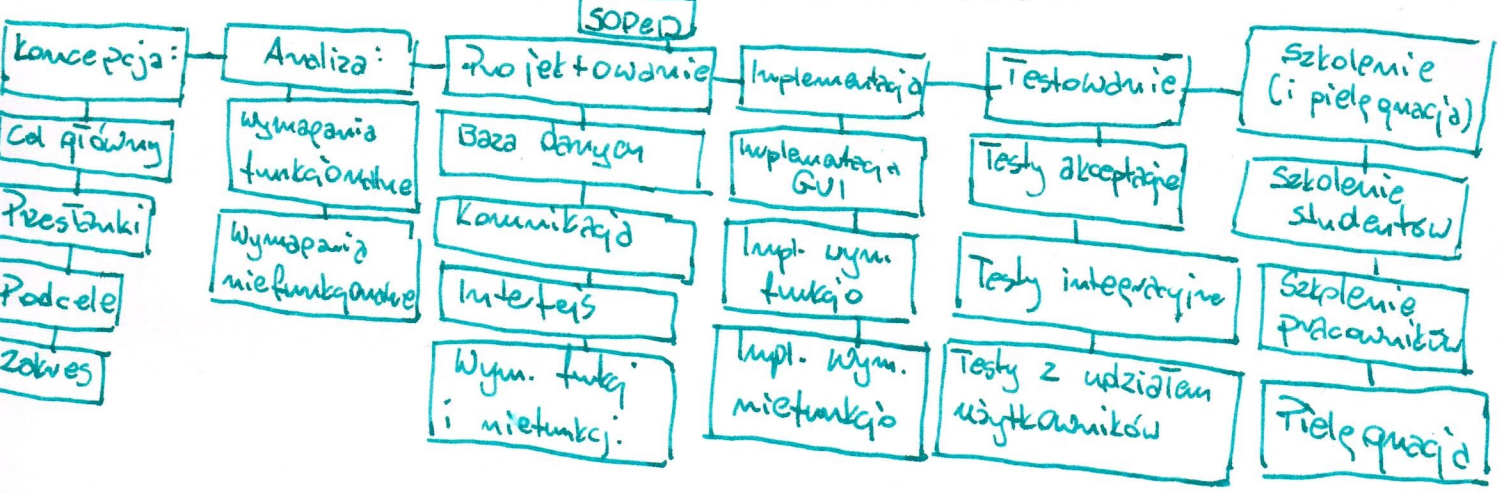 SOPeD
Koncepcja:
Cel główny
Przesłanki
Podcele
Zakres
Analiza:
Wymagania
funkcjonalne
Wymagania
niefunkcjonalne
Projektowanie
Baza danych
Komunikacja
Interfejs
Wym. funkcj
i niefunkcj.
Implementacja
Implementacja
GUI
Impl. wym.
funkcjo
Impl. wym.
niefunkcjo
Testowanie
Testy akceptacyjne
Testy integracyjne
Testy z udziałem
użytkowników
Szkolenie
(i pielęgnacja)
Szkolenie
studentów
Szkolenie
pracowników
Pielęgnacja